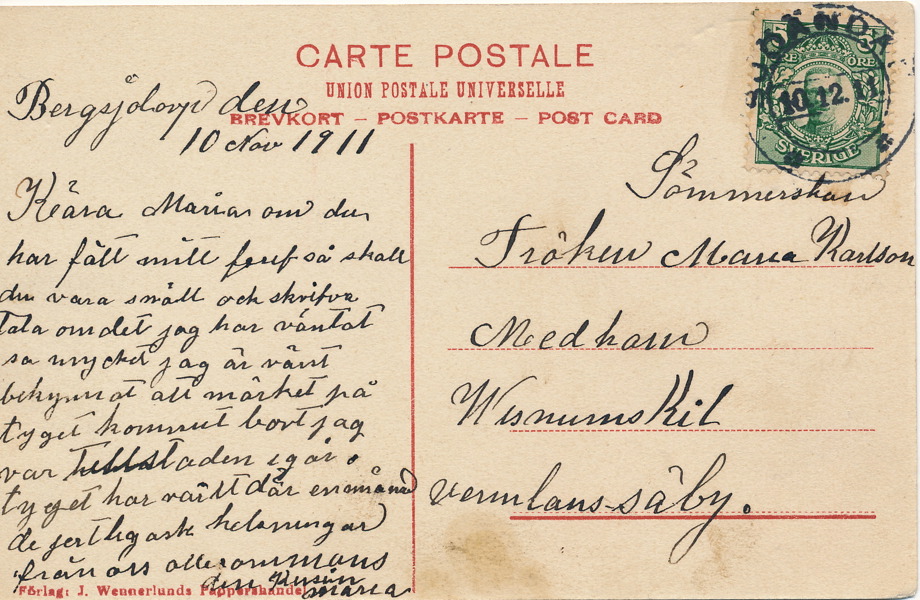 CARTE POSTALE
UNION POSTALE UNIVERSELLE
BREVKORT — POSTKARTE — POST CARD
5 ÖRE
SVERIGE
10.12.11
Bergsjötorp den
10 Nov 1911
Kära Maria om du
har fått mitt så skall
du vara snäll och skrifva
tala om det jag har väntat
så mycket jag är värst
bekymrat att märket på
tyget kommit bort jag
var till staden igår
tyget har varit där en månad
de jertligask helsningar
från oss allesammans
din Kusin
Maria
Förlag: J. Wennerlunds Pappershandel
Sömmerskan
Fröken Maria Karlson
Medhamn
Wisnums Kil
vermlans säby.